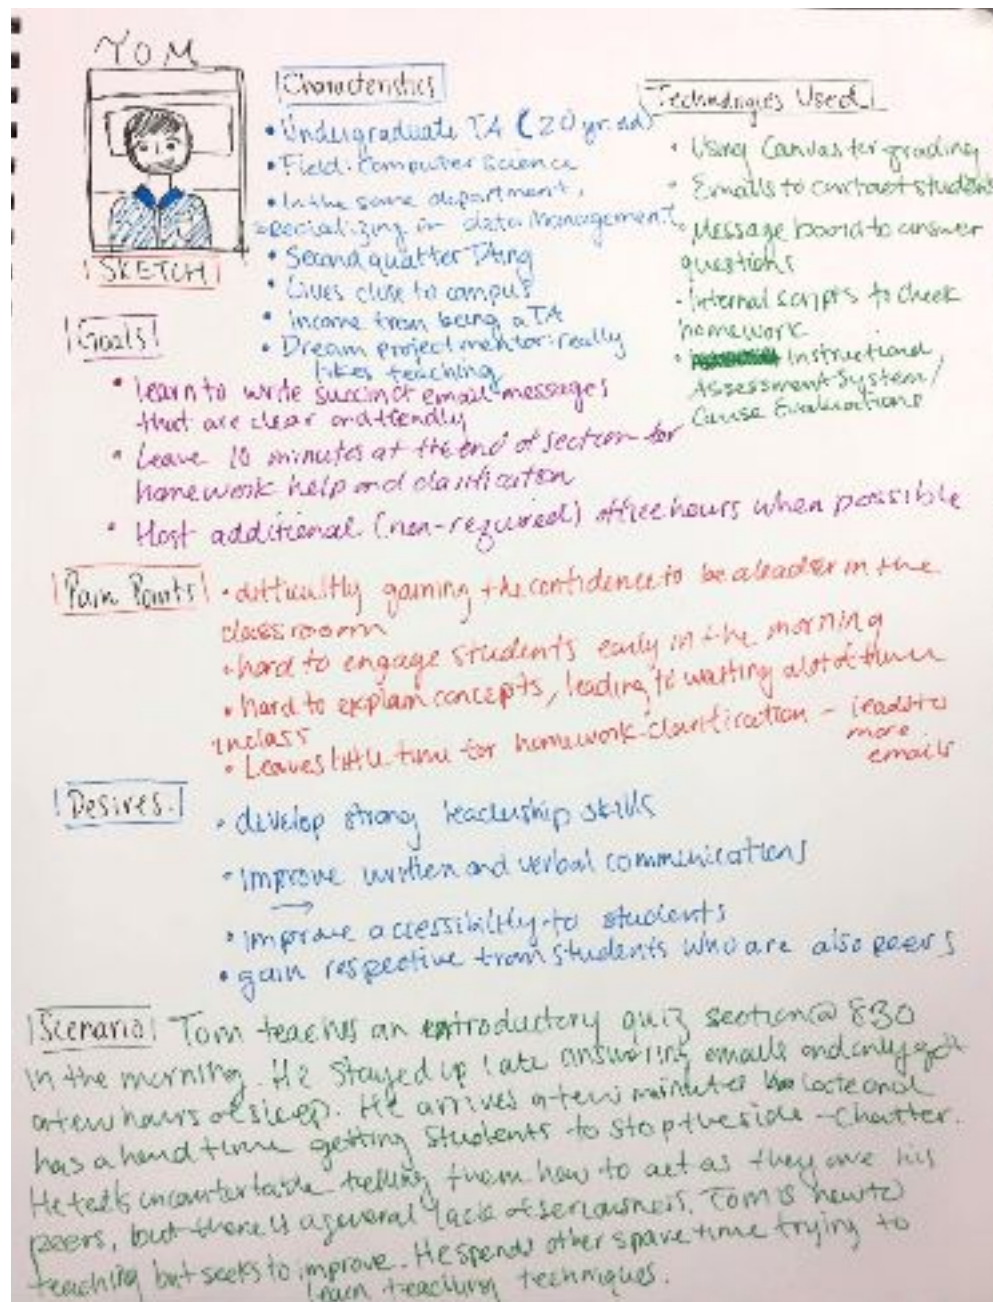 TOM
SKETCH
Characteristics
• Undergraduate TA (20 yr. old)
• Field: Computer Science
• In the same department,
specializing in data management
• Second quatter TAing
• Lives close to campus
• Income from being a TA
• Dream project mentor: really
likes teaching
Technologies Used
• Using Canvas for grading
• Emails to contact students
• Message board to answer
questions
• Internal scripts to check
homework
• Instructional
Assessment System/
Course Evaluations
Goals
• learn to write succinct email messages
that are clear and friendly
• Leave 10 minutes at the end of section for
homework help and clarification
• Host additional (non-required) office hours when possible
Pain Points
• difficultly gaining the confidence to be a leader in the
classroom
• hard to engage students early in the morning
• hard to explain concepts, leading to wasting a lot of time
in class
• Leaves little time for homework clarification - leads to
more
emails
Desires
• develop strong leadership skills
• improve written and verbal communications
→
• improve accessibiltly to students
• gain respective from students who are also peers
Scenario Tom teaches an introductory quiz section @ 830
in the morning. He stayed up late answering emails and only got
a few hours of sleep. He arrives a few minutes late and
has a hard time getting students to stop the side-chatter.
He feels uncomfortable telling them how to act as they are his
peers, but there is a general lack of seriousness. Tom is new to
teaching but seeks to improve. He spends other spare time trying to
learn teaching techniques.